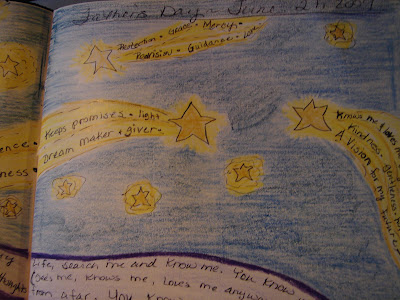 Father's Day - June 21, 2009
Protection • Grace • Mercy •
Provision • Guidance • love
Keeps promises • light
Dream maker & giver •
Knows me & loves me
Kindness • gentleness
A Vision for my future
ence •
ness •
life, search me and know me. You know
knows me, loves me anyway
from afar. You
thoughts